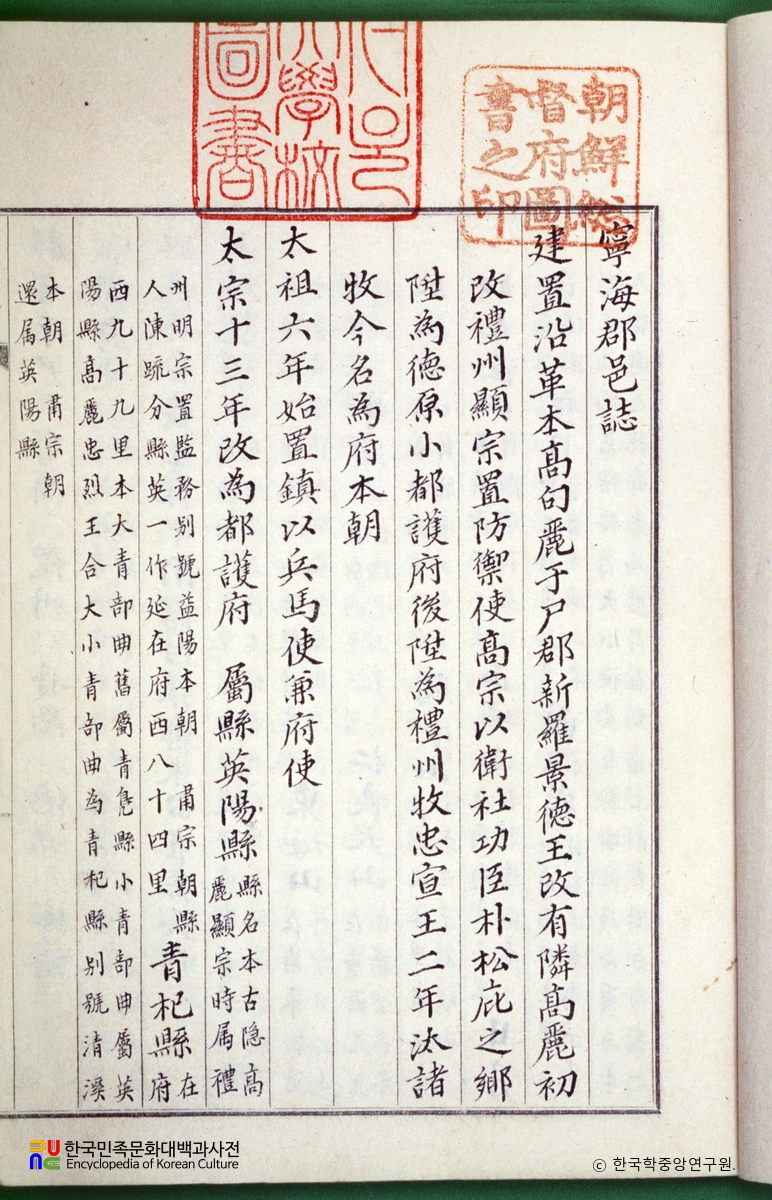 朝鮮総
督府圖
書之印
大學校
圖書
寧海郡邑誌
建置沿革本高句麗于户郡新羅景德王改有隣高麗初
改禮州顯宗置防禦使高宗以衛社功臣朴松庇之鄉
陞為德原小都護府後陞為禮州牧忠宣王二年汰諸
牧今名為府本朝
太祖六年始置鎮以兵馬使兼府使
太宗十三年改為都護府 屬縣英陽縣
縣名本古隐高
麗顯宗時属禮
州明宗置監務别號益陽本朝 肅宗朝縣
人陳疏分縣英一作延在府西八十四里
青杞縣
在
府
西九十九里本大青部曲舊屬青鳧縣小青部曲屬英
陽縣高麗忠烈王合大小青部曲為青杞縣别號清溪
本朝 肅宗朝
還属英陽縣
한국민족문화대백과사전
Encyclopedia of Korean Culture
© 한국학중앙연구원.